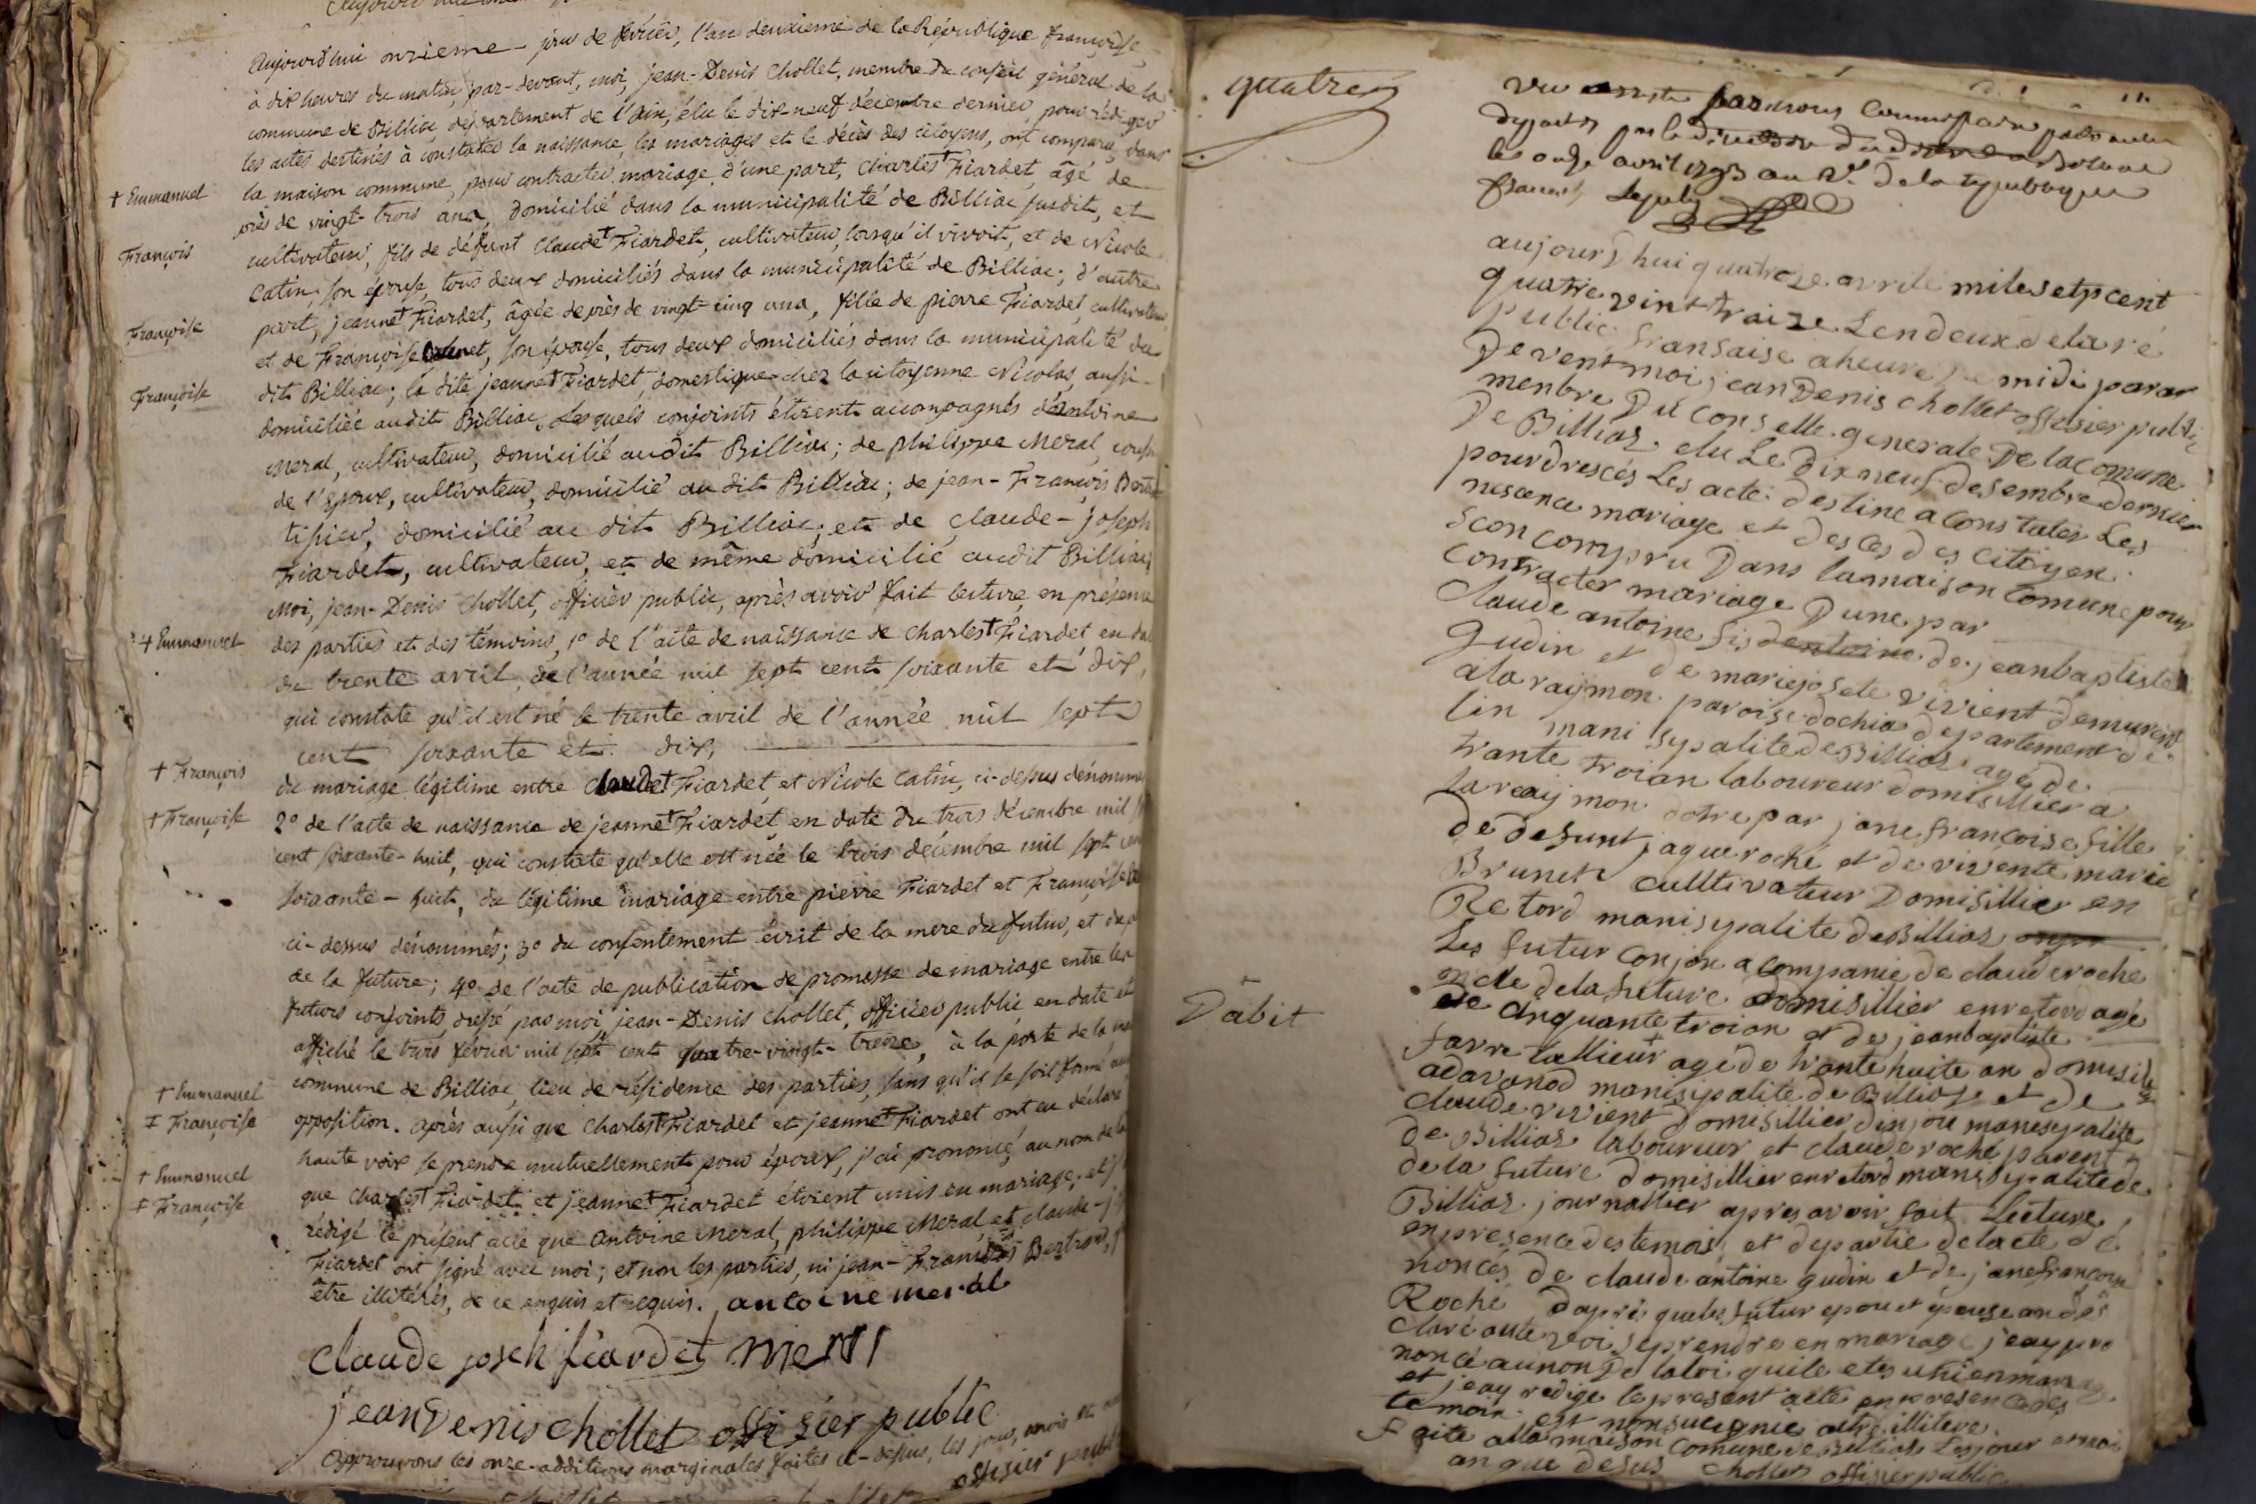 Aujourd'hui onzieme jour de février, l'an deuxieme de la République françoise,
à dix heures du matin, par-devant, moi, jean-Denis Chollet, membre du conseil général de la
commune de Billiac, département de l'ain, élu le dix neuf décembre dernier, pour rédiger
les actes destinés à constater la naissance, les mariages et le décès des citoyens, ont comparu, dans
la maison commune, pour contracter mariage, d'une part, Charles† Fiardet, âgé de
† Emmanuel
près de vingt-trois ans, domicilié dans la municipalité de Billiac susdit, et
cultivateur, fils de défunt Claude† Fiardet, cultivateur, lorsqu'il vivoit, et de Nicole
François
Catin, son épouse, tous deux domiciliés dans la municipalité de Billiac; d'autre
part, jeanne† Fiardet, âgée de près de vingt-cinq ans, fille de pierre Fiardet, cultivateur,
Françoise
et de Françoise son épouse, tous deux domiciliés dans la municipalité du
dit Billiac; la dite jeanne† Fiardet, domestique chez la citoyenne Nicolas, aussi
Françoise
domiciliée audit Billiac. Lesquels conjoints étoient accompagnés d'antoine
Meral, cultivateur, domicilié audit Billiac; de philippe Meral, cousin
de l'epoux, cultivateur, domicilié au dit Billiac; de jean-François
domicilié au dit Billiac; et de Claude-joseph
Fiardet, cultivateur, et de même domicilié audit Billiac,
Moi, jean-Denis Chollet, officier public, après avoir fait lecture, en présence
des parties et des témoins, 1° de l'acte de naissance de Charles† Fiardet en
† Emmanuel
du trente avril, de l'année mil sept cent soixante et dix,
qui constate qu'il est né le trente avril de l'année mil sept
cent soixante et dix,
du mariage légitime entre Claude† Fiardet et Nicole Catin, ci-dessus
† François
2° de l'acte de naissance de jeanne† Fiardet, en date du trois décembre mil
† Françoise
cent soixante-huit, qui constate qu'elle est née le trois décembre mil sept
soixante-huit, du légitime mariage entre pierre Fiardet et Françoise
ci-dessus dénommés; 3° du consentement écrit de la mere du futur, et
de la future; 4° de l'acte de publication de promesse de mariage entre les
futurs conjoints dressé par moi jean-Denis Chollet, officier public en date et
affiché le trois février mil sept cent quatre-vingt-treize, à la porte de la
commune de Billiac, lieu de résidence des parties, sans qu'il se soit formé
opposition. après aussi que Charles† Fiardet et jeanne‡ Fiardet ont eu déclaré
† Emmanuel
‡ Françoise
haute voix se prendre mutuellement pour époux, j'ai prononcé au nom de la
que Charles† Fiardet et jeanne‡ Fiardet étoient unis en mariage, et
† Emmanuel
‡ Françoise
rédigé le présent acte que Antoine Meral, philippe Meral, et claude-
Fiardet ont signé avec moi; et non les parties, ni jean-François Bertrand,
être illitérés, de ce enquis et requis. antoine meral
claude joseh fiardet meral
jean Denis chollet offisier public
approuvons les onze additions marginales faites ci-dessus, les jour, mois et
offisier
quatre
le onze avril 1793 an 2e. de la republique
aujourdhui quatroze avrile mile setpcent
quatre vint traize Lendeux de la ré
public fransaise a heure de midi parar
Devent moi jean Denis chollet offisier public
menbre Du Conselle generale De la comune
De Billias elu Le Dix neuf desembre dernier
pour dresces Les acte destine a Constater Les
nescence mariage et desces des Citoyen
Scon compru Dans lamaison Comune pour
Contracter mariage Dune par
Claude antoine fis de jeanbaptiste
Gudin et de mariejosete vivient demurent
alaraijmon paroise dochia departement de
lin manisypalite de Billias age de
trante troian laboureur domisillier a
laraijmon dotre par jane françoise fille
de defunt jaque roche et de vivente marie
Brunet culltivateur Domisillier en
Retord manisypalite de Billias
Les futur conjoin acompanie de claude roche
oncle dela future domisillier enretord agé
de cinquante troian et de jeanbaptiste
favre tallieur age de trante huite an domisilie
adavanod manisypalite de Billias et de
Dabit
claude vivient domisillier dinjou manisypalite
de Billias laboureur et claude roche parent
de la future domisillier enretord manisypalite de
Billias journallier apres avoir fait Lecture
enpresence des temois et departie delacte de
nonces de claude antoine gudin et de jane françoise
Roche dapré queles futur epou et epouse ondé
claré aute voi seprendre en mariage jeay pro
noncé aunon De laloi quile ete uni enmariage
et jeay redige lepresent acte enpresence des
temoin
faite alla maison Comune de Billias Les jour emoi
anque desus chollet offisier public